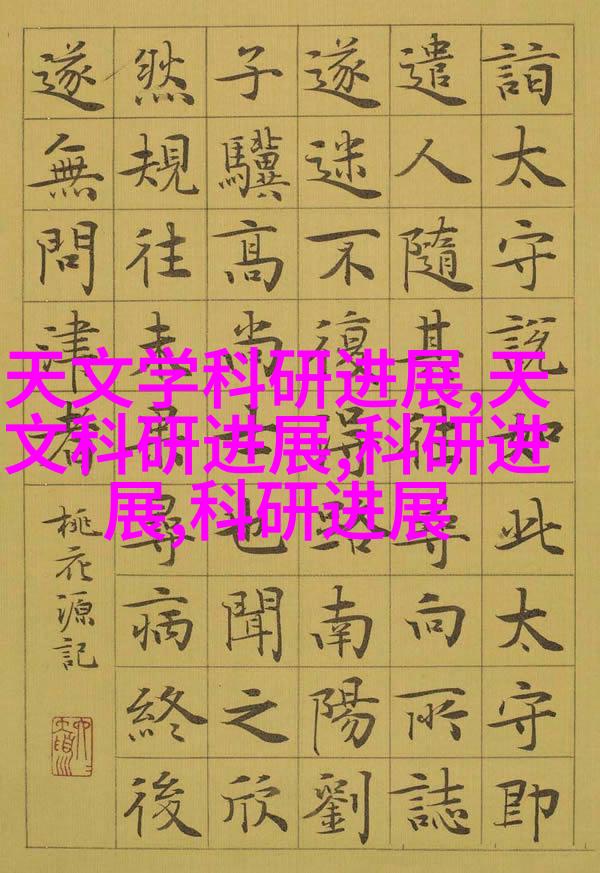 詣太守說如此太守即
遣人隨其往尋向所誌
遂迷不復得路南陽劉
子驥高尚士也聞之欣
然規往未果尋病終後
遂無問津者
桃花源記
天文学科研进展,天
文科研进展,科研进
展,科研进展